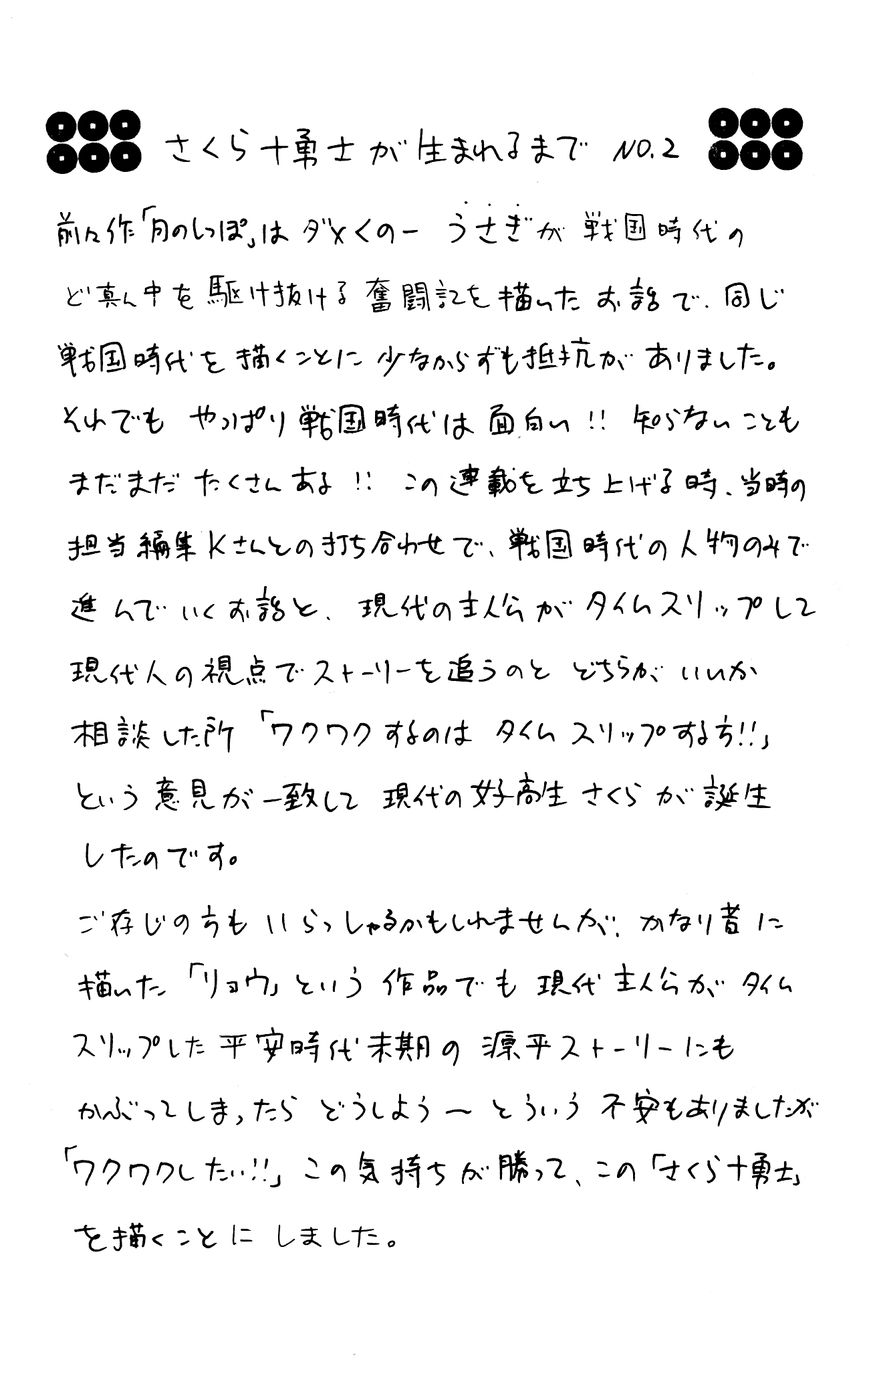 さくら十勇士が生まれるまで NO.2
前々作「月のしっぽ」はダメくの一 うさぎが 戦国時代の
ど真ん中を駆け抜ける奮闘記を描いたお話で、同じ
戦国時代を描くことに少なからずも抵抗がありました。
それでも やっぱり戦国時代は面白い!! 知らないことも
まだまだたくさんある!! この連載を立ち上げる時、当時の
担当編集Kさんとの打ち合わせで、戦国時代の人物のみで
進んでいくお話と、現代の主人公がタイムスリップして
現代人の視点でストーリーを追うのとどちらがいいか
相談した所「ワクワクするのは タイムスリップする方!!」
という意見が一致して 現代の女子高生さくらが誕生
したのです。
ご存じの方もいらっしゃるかもしれませんが、かなり昔に
描いた「リョウ」という作品でも現代主人公がタイム
スリップした平安時代末期の源平ストーリーにも
かぶってしまったらどうしよう〜とういう不安もありましたが
「ワクワクしたい!!」この気持ちが勝って、この「さくら十勇士」
を描くことにしました。